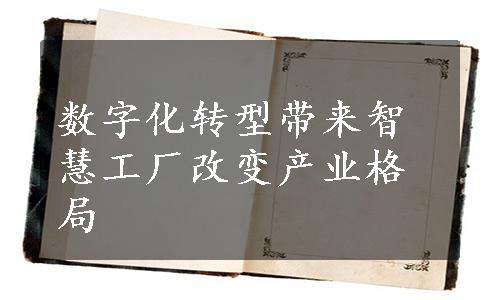 数字化转型带来智
慧工厂改变产业格
局